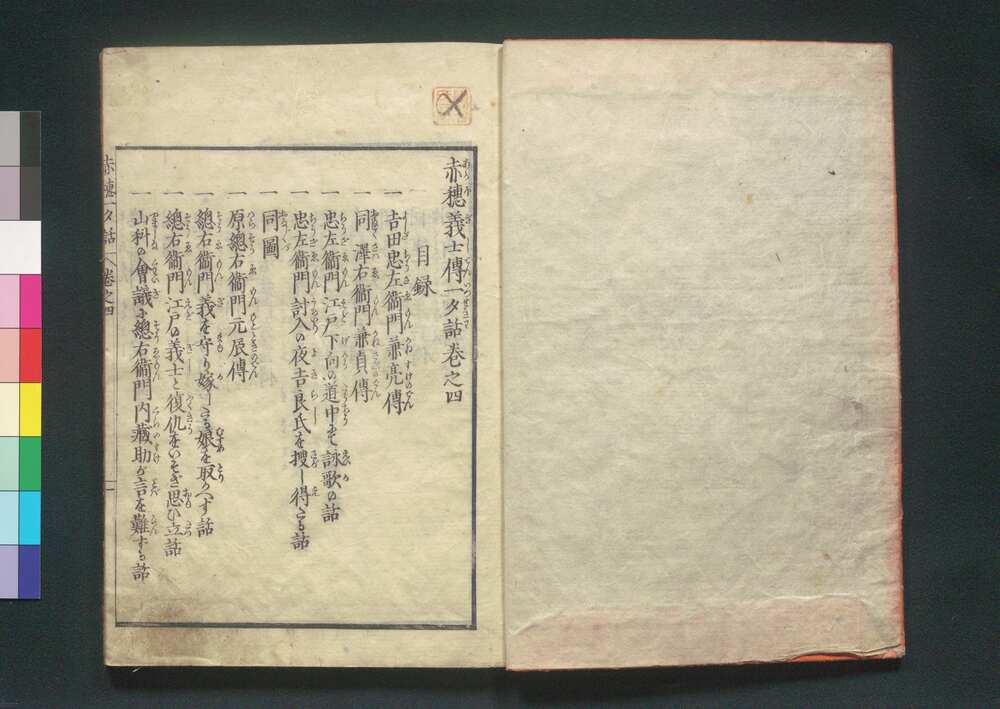 赤穂義士傳一夕話巻之四
目録
一 吉田忠左衞門兼亮傳
一 同 澤右衞門兼貞傳
一 忠左衞門江戸下向の道中にて詠歌の話
一 忠左衞門討入の夜吉良氏を捜し得たる話
一 同圖
一 原總右衞門元辰傳
一 總右衞門義を守り嫁したる娘を取かへす話
一 總右衞門江戸の義士と復仇をいそぎ思ひ立話
一 山科の會議に總右衞門内蔵助が言を難ずる話
赤穂一夕話 巻之四 一